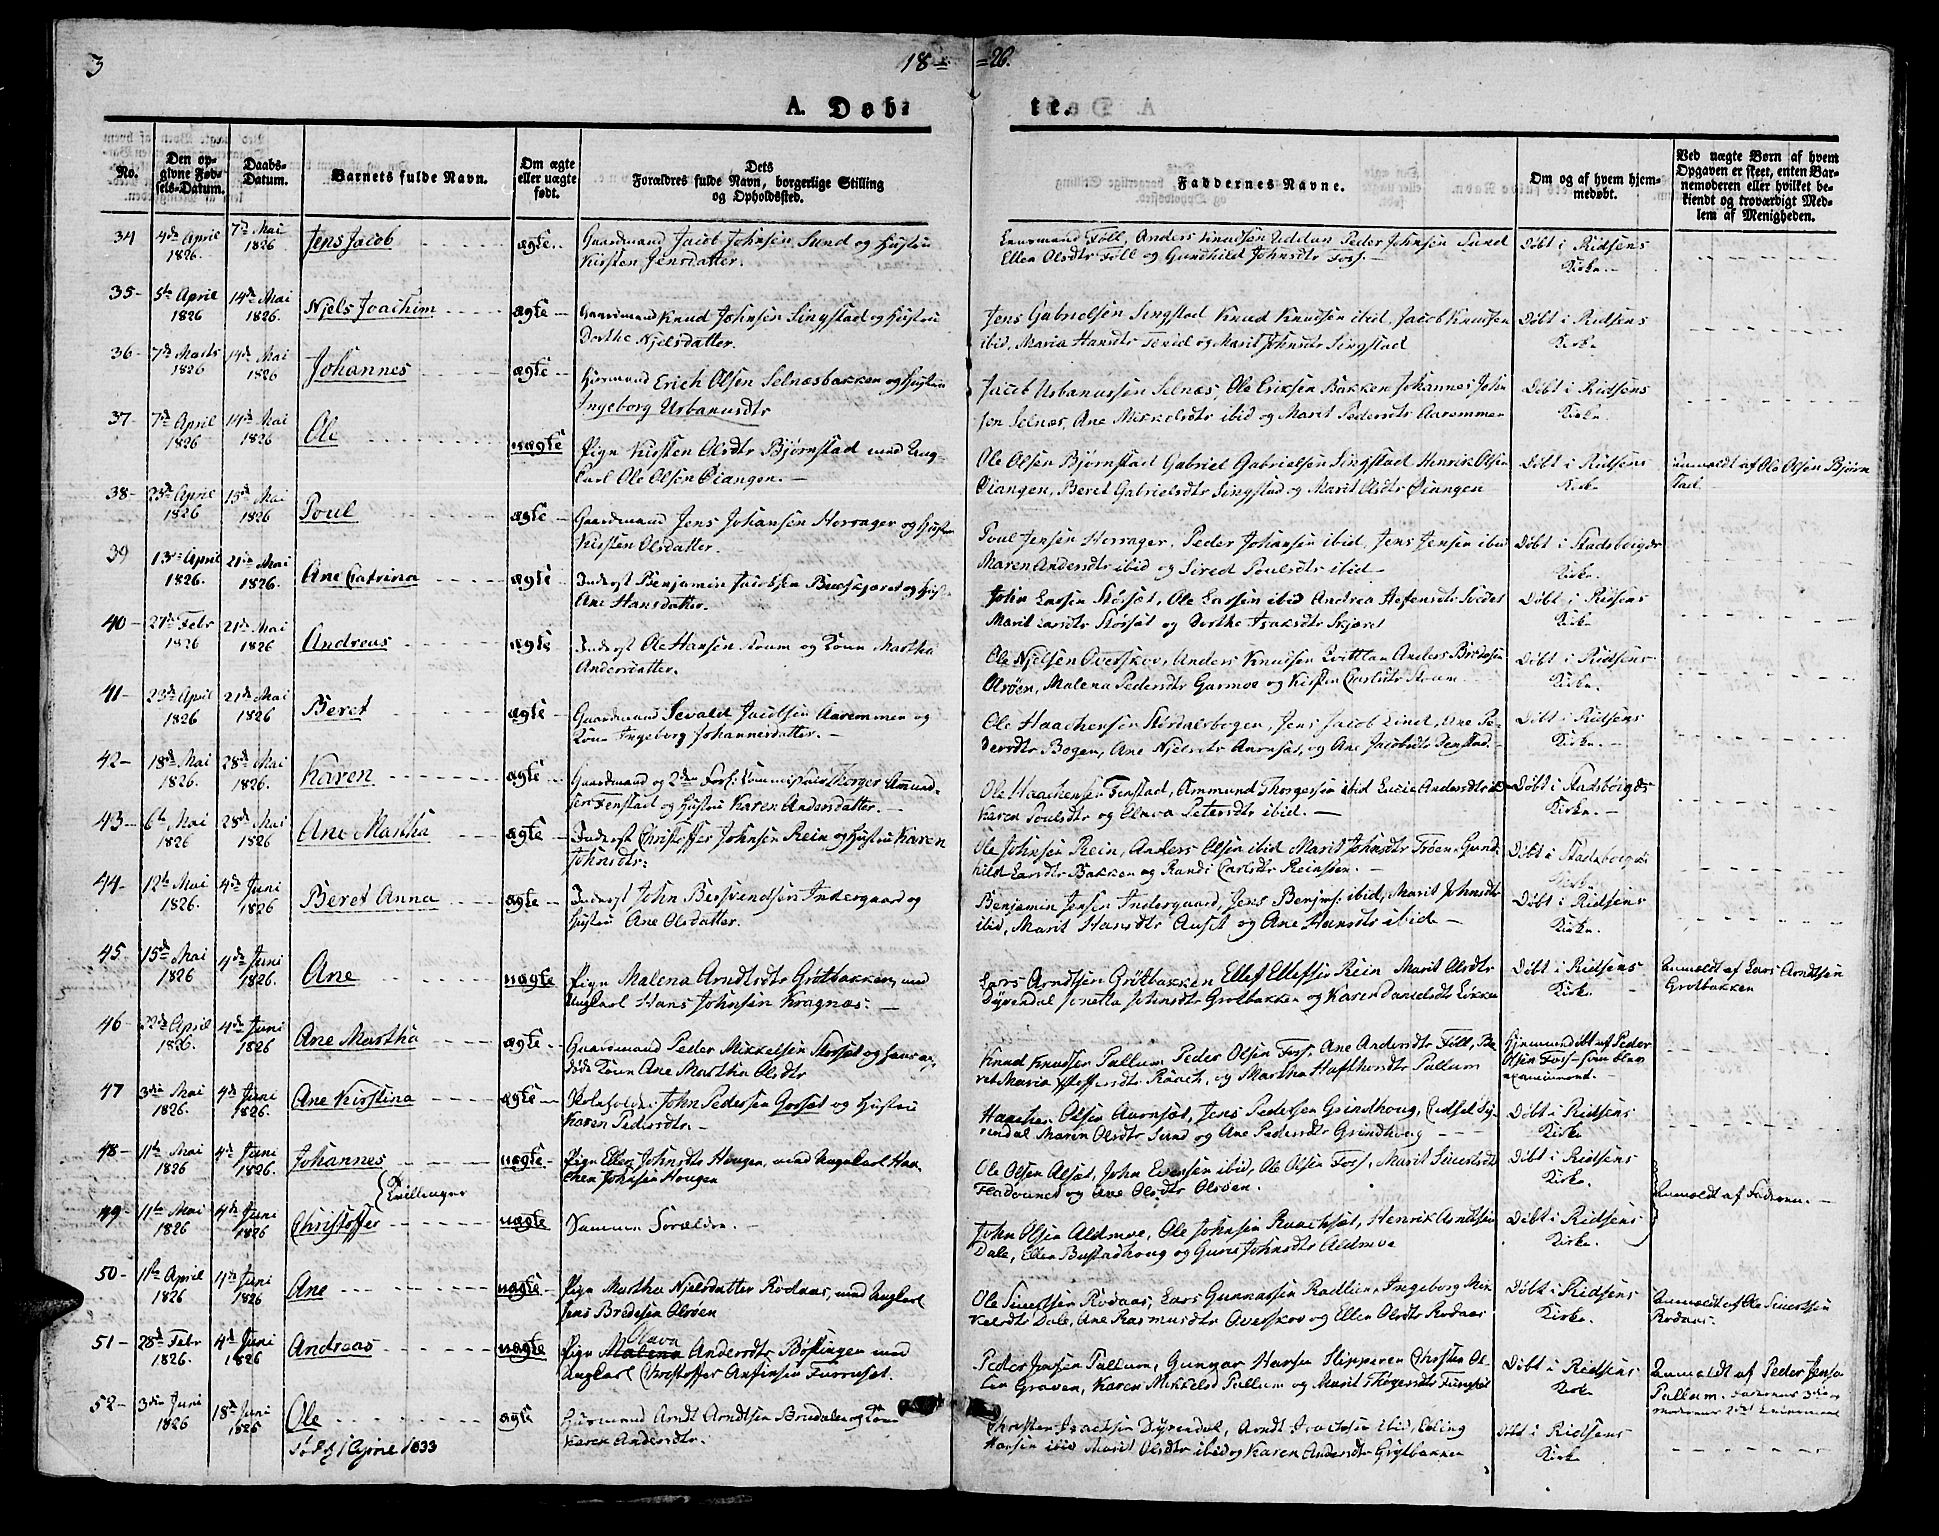 3
18 = 26.
A. Døbte.
No.
Den opgivne Fødsels-Datum.
Daabs-Datum.
Barnets fulde Navn.
Om ægte eller uægte født.
Dets Forældres fulde Navn, borgerlige Stilling og Opholdsted.
Faddernes Navne.
Om og af hvem hjemmedøbt.
Ved uægte Børn af hvem Opgaven er skeet, enten Barnemoderen eller hvilket bekiendt og troværdigt Medlem af Menigheden.
34 4de April 1826. 7de Mai 1826 Jens Jacob ægte Gaardmand Jacob Johnsen Sund og Hustru
Kirsten Jensdatter.
Föll, Anders Knudsen Peder Johnsen Sund
Ellen Olsdtr Föll og Gundhild Johnsdtr Foss
Döbt i Ridsens Kirke
35 5te April 1826 14de Mai 1826. Njels Joachim ægte Gaardmand Knud Johnsen Singstad og Hustru
Dorthe Njelsdatter.
Jens Gabrielsen Singstad Knud Knudsen ibid, Jacob Knudsen
ibid, Maria Hansdtr Sund og Marit Johnsdtr Singstad
Döbt i Ridsens Kirke
36 7de Marts 1826 14de Mai 1826 Johannes ægte Huusmand Erich Olsen Selnæsbakken og Hustru
Ingeborg Urbanusdtr
Jacob Urbanussen Selnæs, Ole Eriksen Bakken Johannes John
sen Selnæs, Ane Mikkelsdtr ibid og Marit Pedersdtr Aaremmen
Döbt i Ridsens Kirke
37 7de April 1826 14de Mai 1826 Ole uægte Pige Kirsten Olsdtr Bjørnstad med Ung-
karl Ole Olsen Øiangen.
Ole Olsen Bjørnstad Gabriel Gabrielsen Singstad Henrik Olsen
Øiangen, Beret Gabrielsdtr Singstad og Marit Olsdtr Øiangen
Döbt i Ridsens Kirke
Anmeldt af Ole Olsen Bjørn
stad
38 23de April 1826 15de Mai 1826 Poul ægte Gaardmand Jens Johansen Horsager og Hustru
Kirsten Olsdatter.
Poul Jensen Horsager, Peder Johansen ibid, Jens Jensen ibid
Maren Andersdtr ibid og Sired Poulsdtr ibid
Döbt i Stadsboigdens Kirke
39 13de April 1826. 21de Mai 1826. Ane Catrina ægte Inderst Benjamin Jacobsen og Hustru
Ane Hansdatter.
John Larsen Störsæt, Ole Larsen ibid Andrea
Marit Larsdtr Störsæt og Dorthe Isaksdtr Skjæret
Döbt i Ridsens Kirke.
40 27de Febr 1826 21de Mai 1826 Andreas ægte Inderst Ole Hansen Strøm og Kone Martha
Andersdatter.
Ole Njelsen Overskov, Anders Knudsen Anders Bredesen
Olsøen, Malena Pedersdtr Garmoe og Kirsten Carlsdtr Strøm
Döbt i Ridsens Kirke.
41 23de April 1826 21de Mai 1826 Beret ægte Gaardmand Sevald Jacobsen Aaremmen og
Kone Ingeborg Johannesdatter.
Ole Haachensen Stördalsbogen, Jens Jacob Lind, Ane Pe-
dersdtr Bogen, Ane Njelsdtr Aarnsæt, og Ane Jacobsdtr Denstad.
Döbt i Ridsens Kirke.
42 18de Mai 1826. 28de Mai 1826. Karen ægte Gaardmand og 2den Forl: Commissair Thorger Amund-
sen Fenstad og Hustru Karen Andersdatter.
Ole Haachensen Fenstad, Ammund Thorgersen ibid Lucie Andersdtr ibid
Karen Poulsdtr og Elnva Petersdtr ibid.
Döbt i Stadsboigdens Kirke.
43 6te Mai 1826 28de Mai 1826 Ane Martha ægte Inderst Christoffer Johnsen Rein og Hustru Karen
Johnsdtr:
Ole Johnsen Rein, Anders Olsen ibid Marit Johnsdtr Trøen, Gund-
hild Larsdtr Bakken og Randi Carlsdtr
Döbt i Stadsboigdens Kirke
44 12te Mai 1826. 4de Juni 1826 Beret Anna ægte Inderst John Bersvendsen Indergaard og
Hustru Ane Olsdatter.
Benjamin Jensen Indergaard, Jens Benjms: ibid, Marit Johnsdtr
ibid, Marit Hansdtr Auset og Ane Hansdtr ibid
Döbt i Ridsens Kirke.
45 15de Mai 1826 4de Juni 1826. Ane uægte Pige Malena Arndtsdtr Grötbakken, med
Ungkarl Hans Johnsen Kragnæs:
Lars Arndtsen Grötbakken Ellef Ellefsen Rein Marit Olsdtr
Dyrendal Jonetta Johnsdtr Grötbakken og Karen Danielsdtr Løkken
Döbt i Ridsens Kirke
Anmeldt af Lars Arndtsen
Grötbakken
46 22de April 1826. 4de Juni 1826 Ane Martha ægte Gaardmand Peder Mikkelsen Storsæt og
Kone Ane Martha Olsdtr
Knud Knudsen Pallum Peder Olsen Foss, Ane Andersdtr Föll, Be
ret Maria Raach, og Martha Pallum
Hjemmedöbt af Peder
Olsen Foss som blev
examineret.
47 3die Mai 1826 4de Juni 1826. Ane Kirstina ægte Skoleholder John Pedersen Gorset og Hustru
Karen Pedersdtr
Haachen Olsen Aarnsæt, Jens Pedersen Grindhoug, Dy-
rendal Maren Olsdtr Sund og Ane Pedersdtr Grindhoug
Döbt i Ridsens Kirke
48 11te Mai 1826 4de Juni 1826. Johannes uægte Pige Ellen Johnsdtr Hougen, med Ungkarl Haa-
chen Johnsen Hougen
Tvillinger
Ole Olsen Alsæt, John Evensen ibid, Ole Olsen Foss, Marit Sivertsdtr
og Ane Olsdtr Olsøen.
Döbt i Ridsens Kirke.
Anmeldt af Faderen.
49 11te Mai 1826 4de Juni 1826 Christoffer uægte Samme Forældre.
John Olsen Aldmoe, Ole Johnsen Raachsæt, Henrik Arndtsen
Dale, Ellen Bustadhoug og Guru Johnsdtr Aldmoe
Döbt i Ridsens Kirke.
50 11te April 1826 4de Juni 1826 Ane uægte Pige Martha Njelsdatter Rödaas, med Ungkarl
Jens Bredesen Olsøen
Ole Sivertsen Rödaas, Lars Gunnarsen Ingeborg Mik
kelsdtr Dale, Ane Rasmusdtr Overskov og Ellen Olsdtr Rodaas
Döbt i Ridsens Kirke.
Anmeldt af Ole Sivertsen
Rodaas.
51 28de Febr 1826. 4de Juni 1826 Andreas uægte Pige Malena Olava Andersdtr Böstingen med
Ungkarl Christoffer Anfinsen Furruset.
Peder Jensen Pallum, Gunnar Hansen Slipperen Christen Ol-
sen Graven, Karen Mikkelsd Pallum og Marit
Döbt i Ridsens Kirke
Anmeldt af Peder Jensen
Pallum. Faderens 3die
Moderens 2det Leiermaal
52 3die Juni 1826 18de Juni 1826 Ole ægte Huusmand Arndt Arndtsen Brudalen og Kone
Karen Andersdtr.
Död 1 April 1833
Christen Isachsen Dyrendal, Arndt Isachsen ibid, Elling
Hansen ibid Marit Olsdtr ibid og Karen Andersdtr Grötbakken
Döbt i Ridsens Kirke